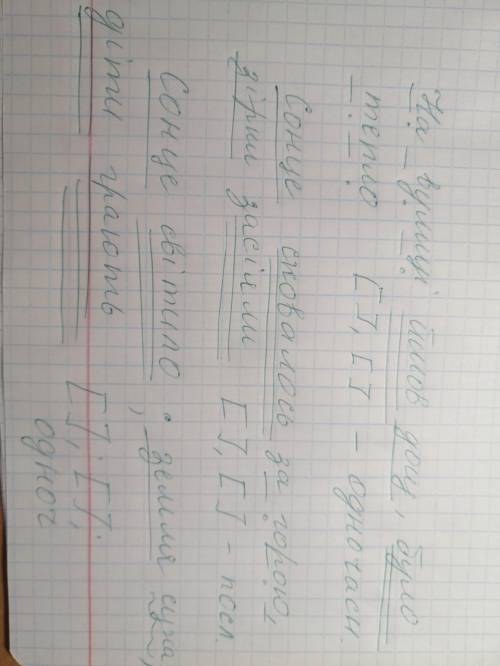 На вулиці йшов дощ, було
тепло [ ], [ ] - одночасн.
Сонце сховалось за горою,
зірки засіяли [ ], [ ] - посл.
Сонце світило; земля суха,
діти грають [ ]; [ ];
одноч